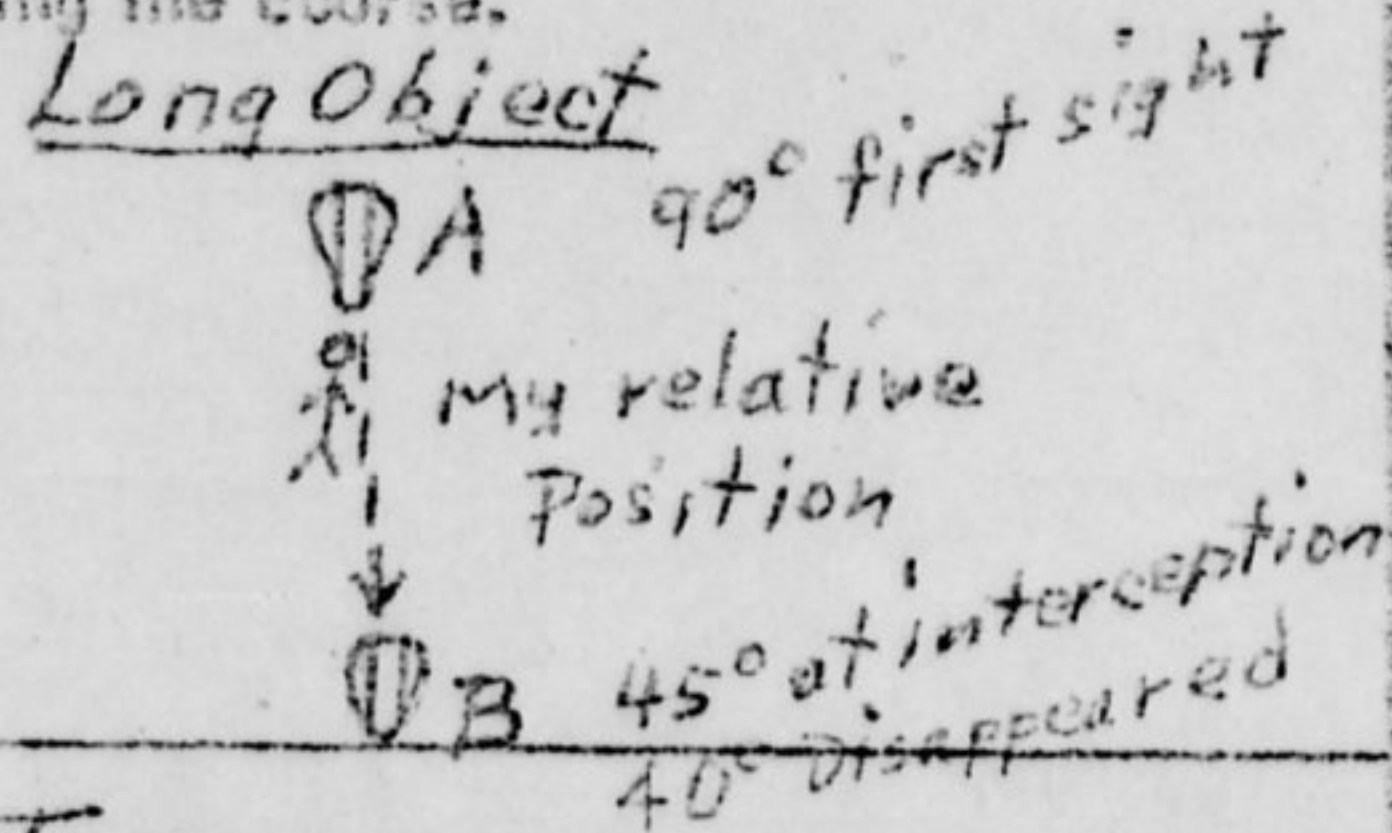 the course.
Long Object
A
90° first sight
My relative
Position
B
45° at interception
40° Disappeared